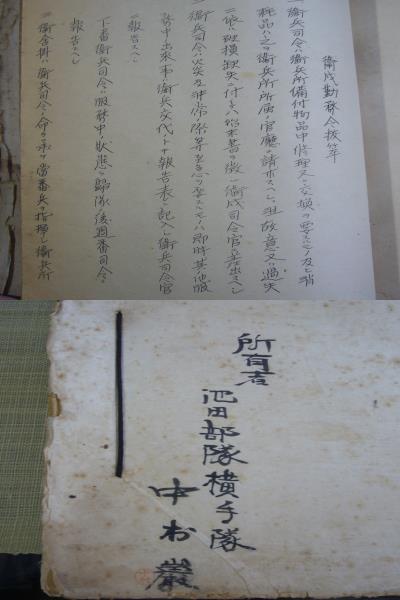 衛戍勤務令抜萃
一 衛兵司令ハ衛兵所備付物品中修理又ハ交換ヲ要スルモノ及ヒ消
耗品ハ之ヲ衛兵所所属ノ官廳ニ請求スヘシ但故意又ハ過失
ニ依ル毀損缺失ニ付テハ始末書ヲ徴シ衛戍司令官ニ差出スヘシ
一 衛兵司令ハ火災及非常ノ際等急ヲ要スルモノハ即時其他服
務中ノ出来事ハ衛兵交代ノトキ報告表ニ記入シ衛兵司令官
ニ報告スヘシ
下番衛兵司令ハ服務中ノ状態ヲ歸隊後週番司令ニ
報告スヘシ
一 衛舎掛ハ衛兵司令ノ命ヲ承ケ當番兵ヲ指揮シ衛兵所
所有者
池田部隊横手隊
中村巖